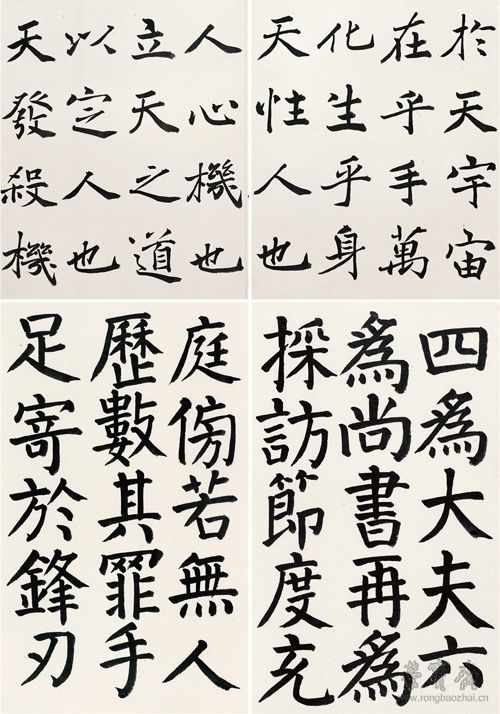 於天宇宙
在乎手萬
化生乎身
天性人也
人心機也
立天之道
以定人也
天發殺機
四爲大夫六
爲尚書再爲
採訪節度充
庭傍若無人
歷數其罪手
足寄於鋒刃
榮寶齋
www.rongbaozhai.cn